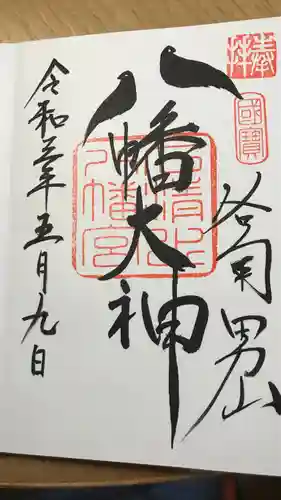 奉拝
國寶
筥𦚰 男山
八幡大神
石清水
八幡宮
令和三年五月九日